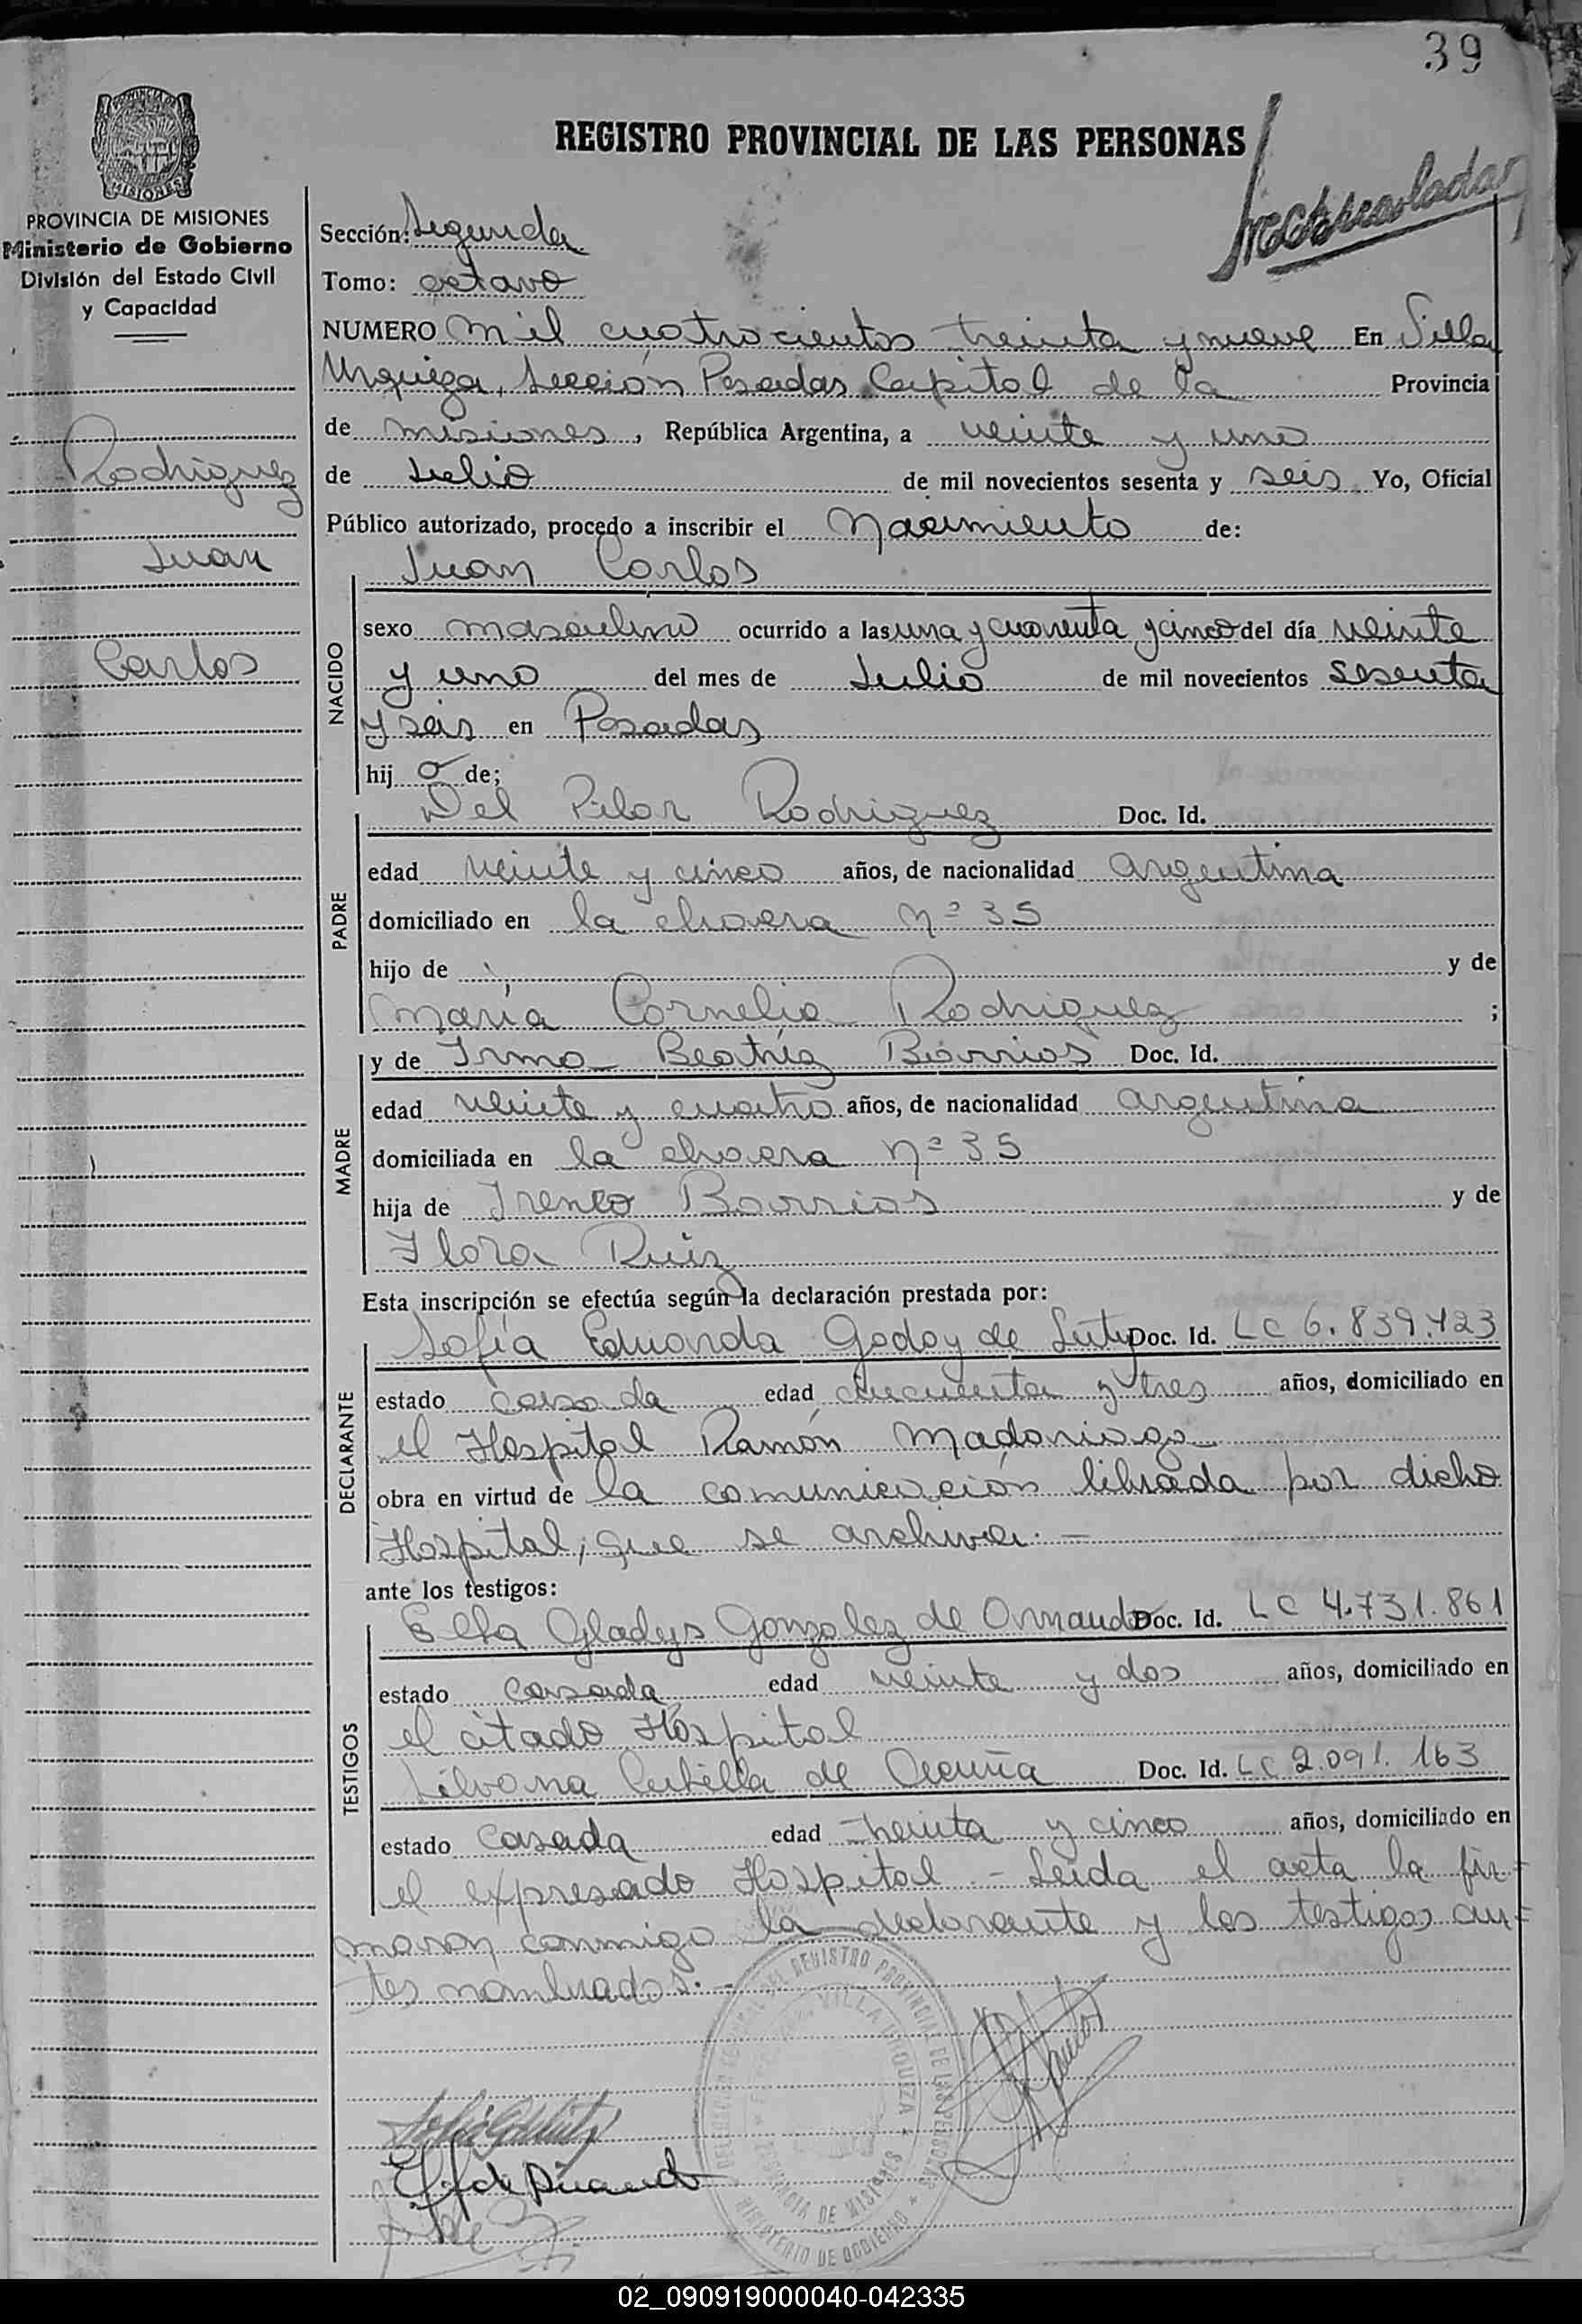 39
REGISTRO PROVINCIAL DE LAS PERSONAS
MISIONES
PROVINCIA DE MISIONES
Ministerio de Gobierno
División del Estado Civil
y Capacidad
Rodriguez
Juan
Carlos
Sección: Segunda
Tomo: octavo
NUMERO mil cuatrocientos treinta y nueve En Villa
Urquiza, Sección Posadas Capital de la Provincia
de misiones, República Argentina, a veinte y uno
de Julio de mil novecientos sesenta y seis Yo, Oficial
Público autorizado, procedo a inscribir el Nacimiento de:
Juan Carlos
NACIDO
sexo masculino ocurrido a las una y cuarenta y cinco del día veinte
y uno del mes de Julio de mil novecientos sesenta
y seis en Posadas
hijo de;
PADRE
Del Pilar Rodriguez Doc. Id.
edad veinte y cinco años, de nacionalidad argentina
domiciliado en la chacra Nº 35
hijo de y de
María Cornelia Rodriguez ;
MADRE
y de Irma Beatríz Barrios Doc. Id.
edad veinte y cuatro años, de nacionalidad argentina
domiciliada en la chacra nº 35
hija de Ireneo Barrios y de
Flora Ruiz
Esta inscripción se efectúa según la declaración prestada por:
DECLARANTE
Sofía Eduarda Godoy de Doc. Id. LC 6.839.423
estado casada edad cincuenta y tres años, domiciliado en
el Hospital Ramón Madariaga
obra en virtud de la comunicación librada por dicho
Hospital, que se archiva.=
ante los testigos:
TESTIGOS
Gladys Gonzalez de Doc. Id. LC 4.731.861
estado casada edad veinte y dos años, domiciliado en
el citado Hospital
de Acuña Doc. Id. LC 2.091.163
estado casada edad treinta y cinco años, domiciliado en
el expresado Hospital - Leída el acta la fir=
maron conmigo la declarante y los testigos an=
tes nombrados.-
REGISTRO PROVINCIAL DE LAS PERSONAS
VILLA URQUIZA
PROVINCIA DE MISIONES
MINISTERIO DE GOBIERNO
02_090919000040-042335